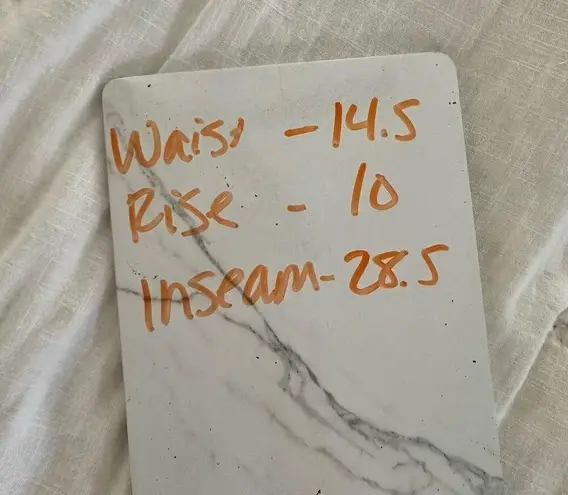 Waist - 14.5
Rise - 10
Inseam - 28.5